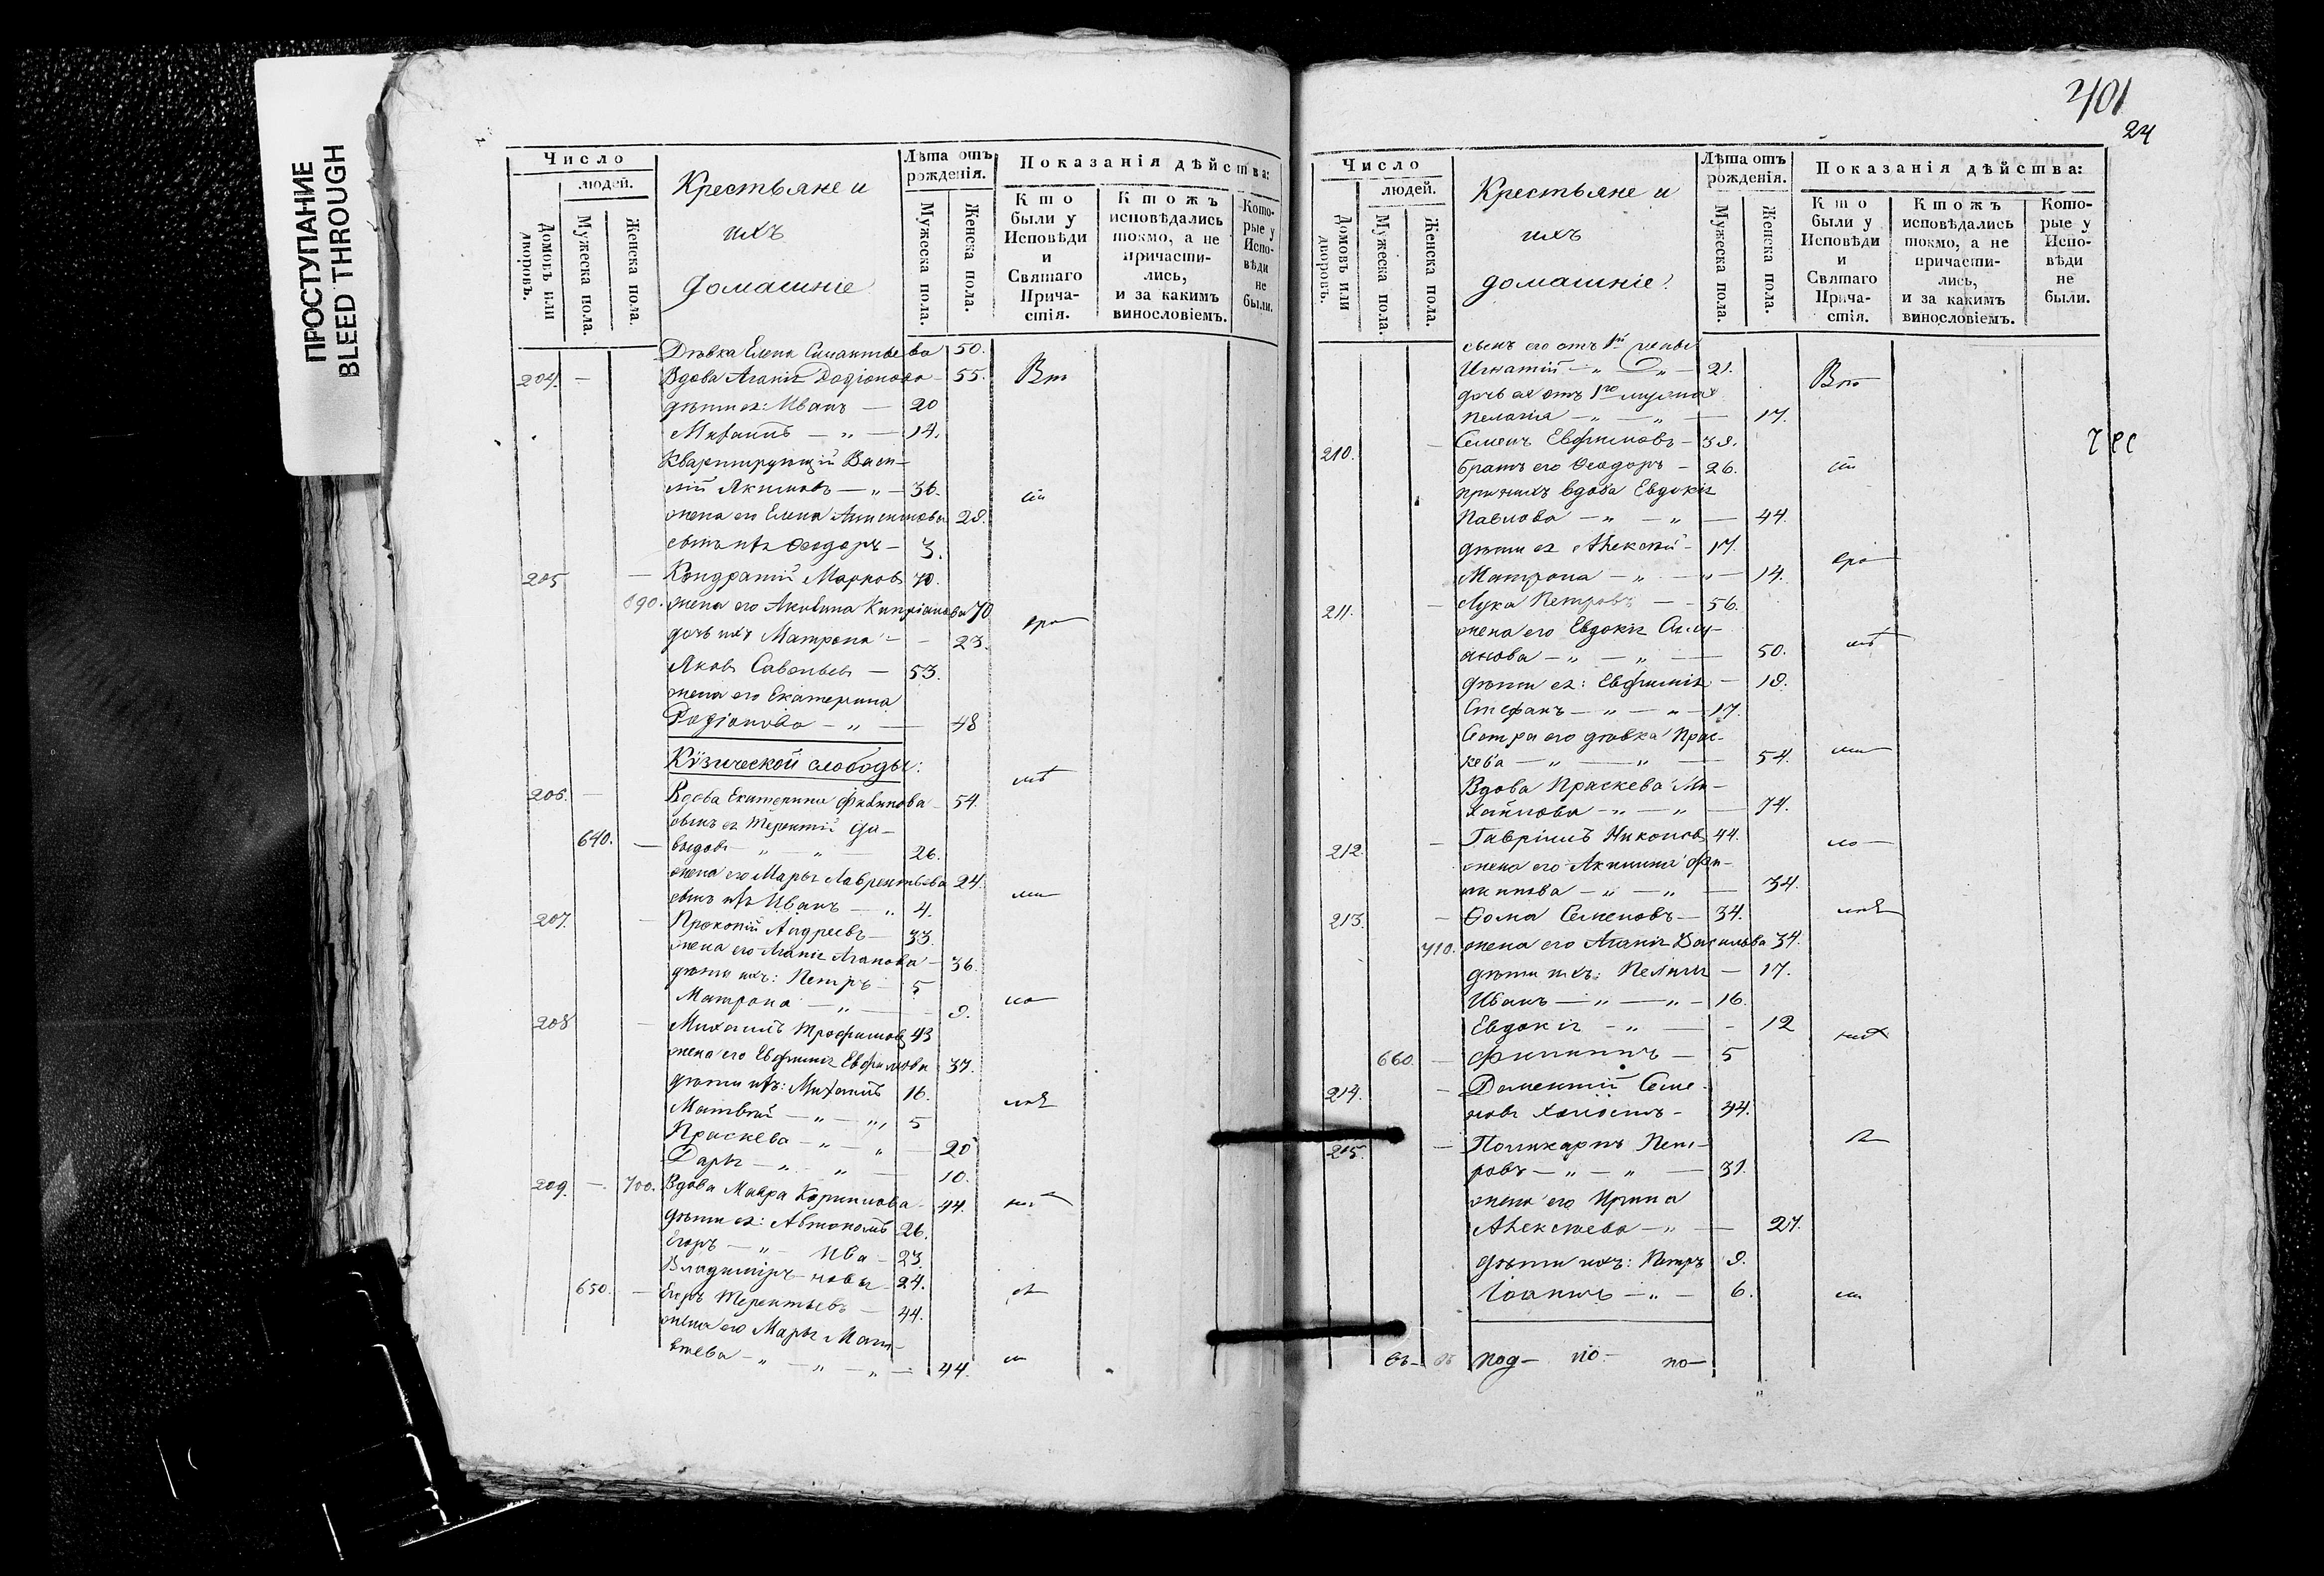 ПРОСТУПАНИЕ
BLEED THROUGH
Число
людей.
Домовъ или дворовъ.
Мужеска пола.
Женска пола.
Крестьяне и
ихъ
домашніе
Лѣта отъ рожденія.
Мужеска пола.
Женска пола.
Показанія дѣйства:
Кто были у Исповѣди и Святаго Причастія.
Ктожъ исповѣдались токмо, а не причастились, и за какимъ винословіемъ.
Которые у Исповѣди не были.
Дѣвка Елена Силантьева 50.
204. — Вдова Агапія Родіонова — 55. Вт
дѣти ея: Иванъ — 20
Михаилъ — „ — 14.
Квартирующій Васи-
лій Якимовъ — „ — 36.
жена его Елена 28.
сынъ ихъ Ѳеодоръ — 3.
205 — Кондратій Марковъ 70.
690. жена его Акилина Кипріанова 70
дочь ихъ Матрона — — 23.
Яковъ Савельевъ — 53.
жена его Екатерина
Родіонова — „ — 48
Кизической слободы:
206. — Вдова Екатерина Филипова — 54.
сынъ ея Терентій Да-
640. — выдовъ — „ — „ — 26.
жена его Марья Лаврентьева 24.
сынъ ихъ Иванъ — „ 4.
207. — Прокопій Андреевъ — 33.
жена его Агапія Агапова — 36.
дѣти ихъ: Петръ — 5
Матрона — „ — 9.
208 — Михаилъ Трофимовъ 43
жена его Евфимія Евфимова 37.
дѣти ихъ: Михаилъ 16.
Матвей — „ — „ 5
Праскева — „ — „ — 20
Дарья — „ — „ — 10.
209. — 700. Вдова Мавра Кирилова — 44.
дѣти ея: Автономъ 26.
Егоръ — „ — Ива — 23.
Владимиръ — новы — 24.
650. — Егоръ Терентьевъ — 44.
жена его Марья Мат-
вѣева — „ — „ — „ — 44.
401
24
Число
людей.
Домовъ или дворовъ.
Мужеска пола.
Женска пола.
Крестьяне и
ихъ
домашніе
Лѣта отъ рожденія.
Мужеска пола.
Женска пола.
Показанія дѣйства:
Кто были у Исповѣди и Святаго Причастія.
Ктожъ исповѣдались токмо, а не причастились, и за какимъ винословіемъ.
Которые у Исповѣди не были.
сынъ его отъ 1й жены
Игнатій — „ — „ — 21. Вто
дочь ея отъ 1го мужа
Пелагія — „ — „ — 17.
210. — Семенъ Евфимовъ — 38.
братъ его Ѳеодоръ — 26.
при нихъ вдова Евдокія
Павлова — „ — „ — 44.
дѣти ея Алексѣй — 17.
Матрона — „ — „ — 14.
211. — Лука Петровъ — — 56.
жена его Евдокія
50.
дѣти ея: Евфимія — 18.
Стефанъ — „ — „ — 17.
Сестра его дѣвка Прас-
кева — „ — „ — 54.
Вдова Праскева Ми-
хайлова — „ — „ — 74.
212. — Гавріилъ Никоновъ 44.
жена его Акилина Фи-
липова — „ — „ — 34.
213. — Ѳома Семеновъ — 34.
710. жена его Агапія Васильева 34.
дѣти ихъ: Пелагія — 17.
Иванъ — „ — „ — 16.
Евдокія — „ — — 12
660. — Филиппъ — 5
214. — Дометій Семе-
новъ холостъ — 44.
215. — Поликарпъ Пет-
ровъ — „ — „ — 31.
жена его Ирина
Алексѣева — „ — 27.
дѣти ихъ: Петръ 9.
Іоаннъ — „ — 6.
под — по — по —